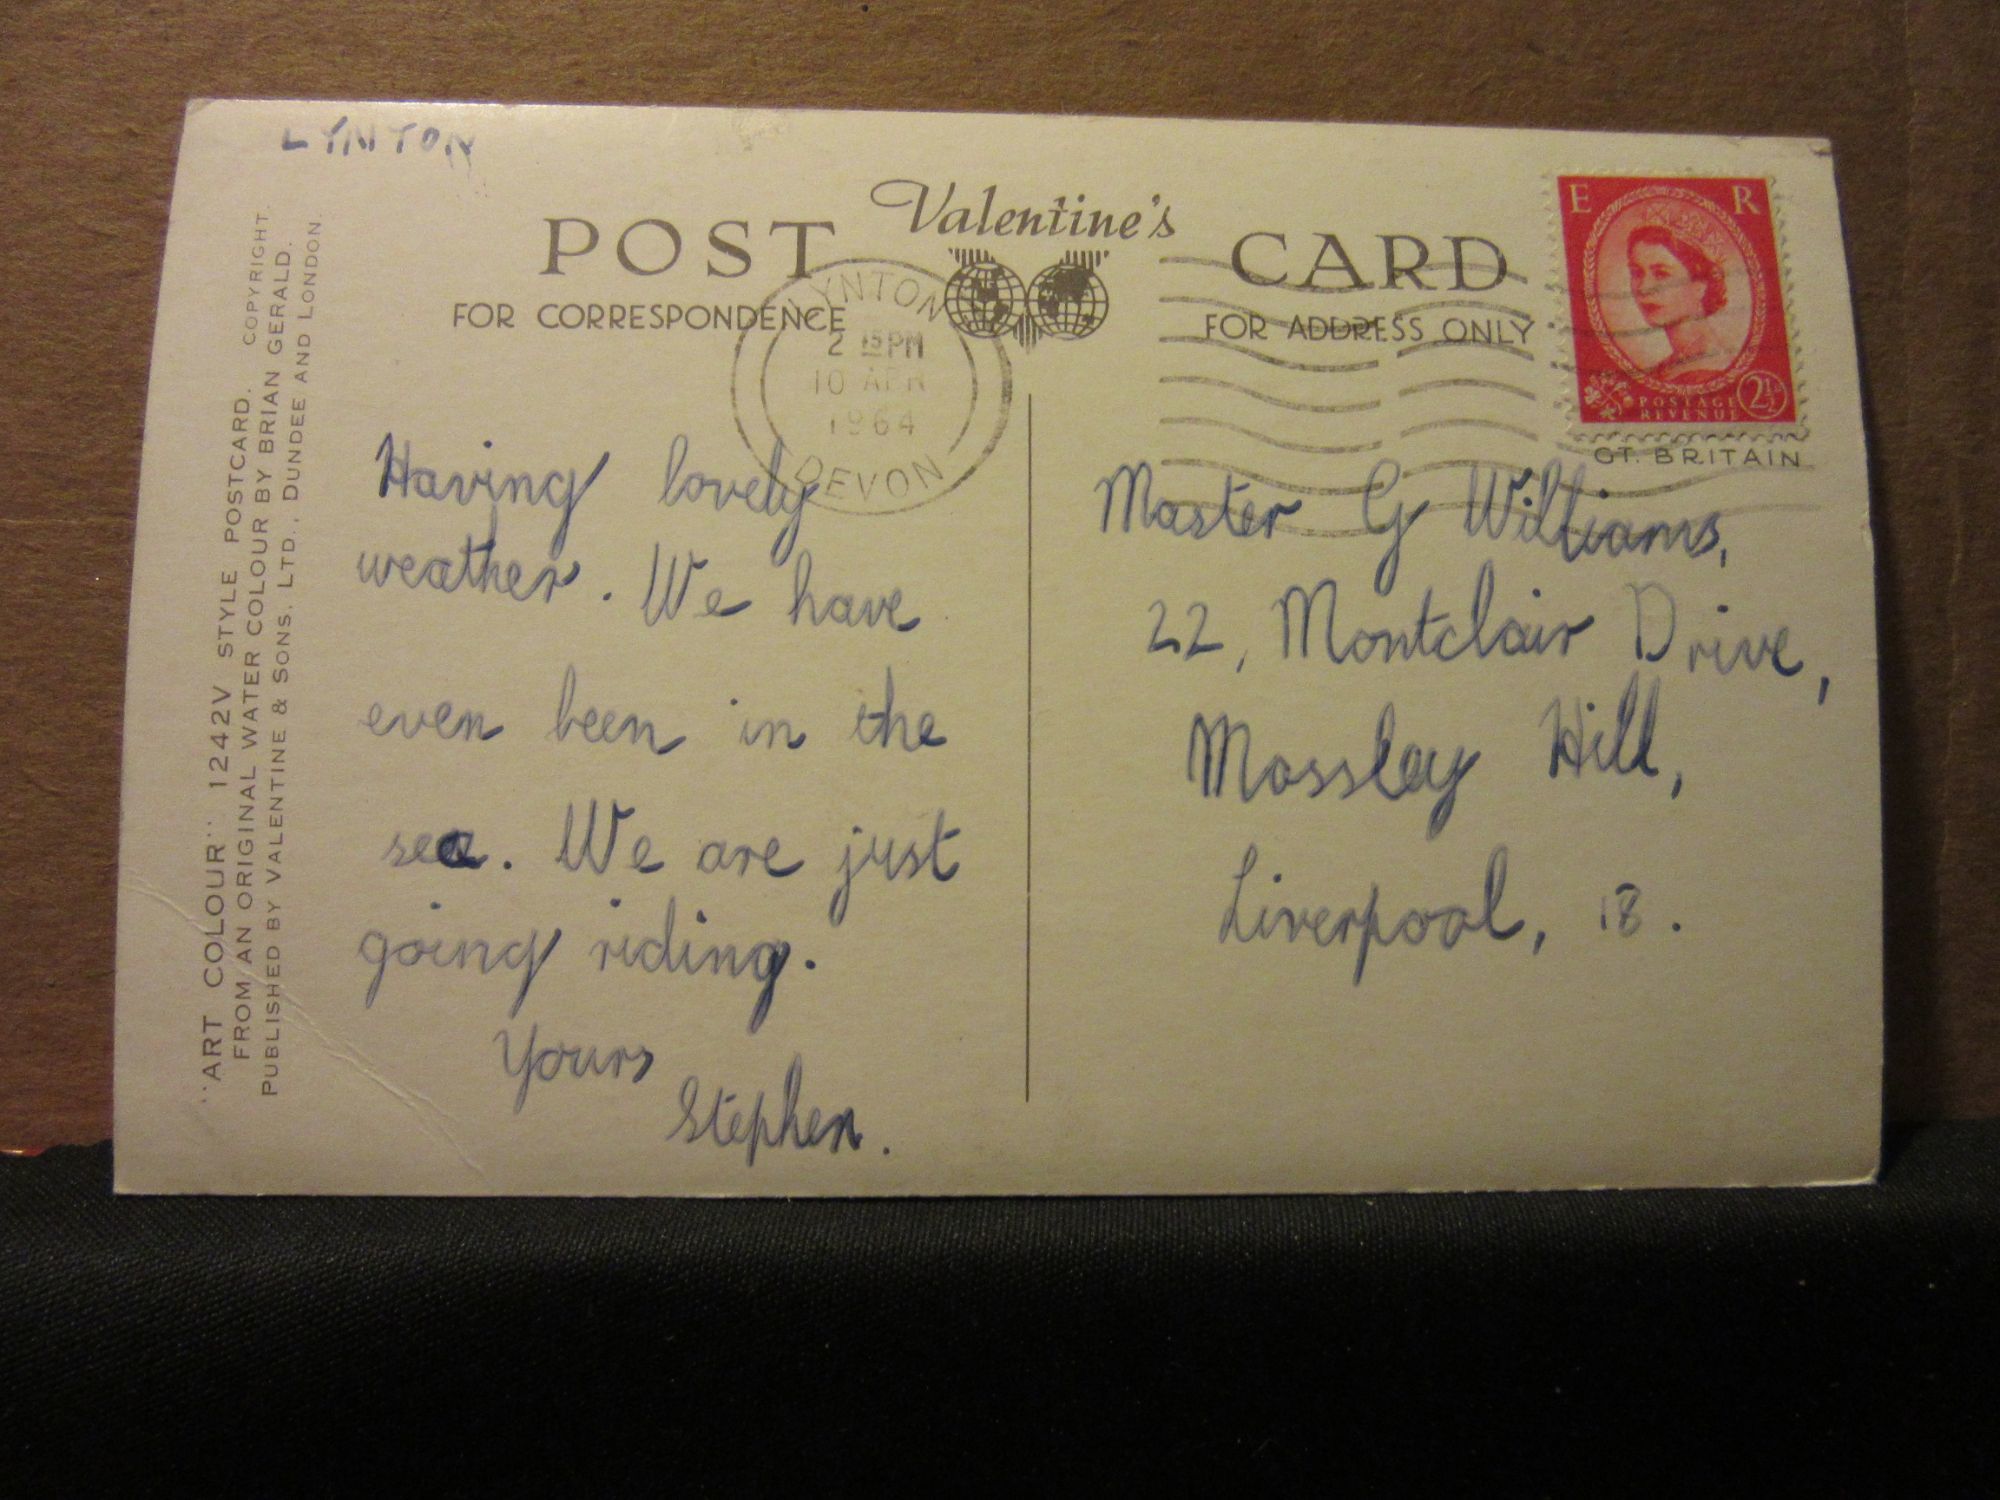 LYNTON
POST Valentine's CARD
FOR CORRESPONDENCE
FOR ADDRESS ONLY
LYNTON
2 15 PM
10 APR
1964
DEVON
E R
POSTAGE
REVENUE
2½
GT. BRITAIN
Having lovely
weather. We have
even been in the
sea. We are just
going riding.
Yours
Stephen.
Master G Williams,
22, Montclair Drive,
Mossley Hill,
Liverpool, 18.
"ART COLOUR" 1242V STYLE POSTCARD. COPYRIGHT.
FROM AN ORIGINAL WATER COLOUR BY BRIAN GERALD.
PUBLISHED BY VALENTINE & SONS. LTD., DUNDEE AND LONDON